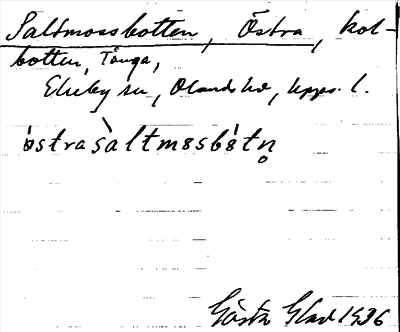 Saltmossbotten, Östra, kol-
botten, Tånga,
Ekeby sn, Olands hd, Upps. l.
östrasàltmøsbøtn̥
Gösta Glad 1936